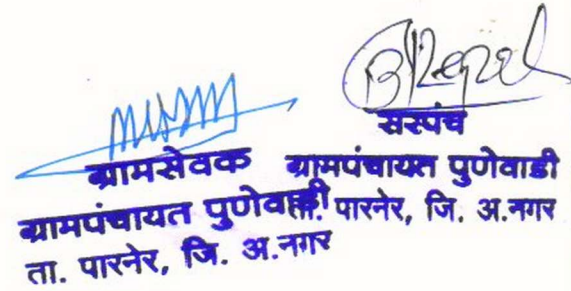 ग्रामसेवक
ग्रामपंचायत पुणेवाडी
ता. पारनेर, जि. अ.नगर
सरपंच
ग्रामपंचायत पुणेवाडी
ता. पारनेर, जि. अ.नगर